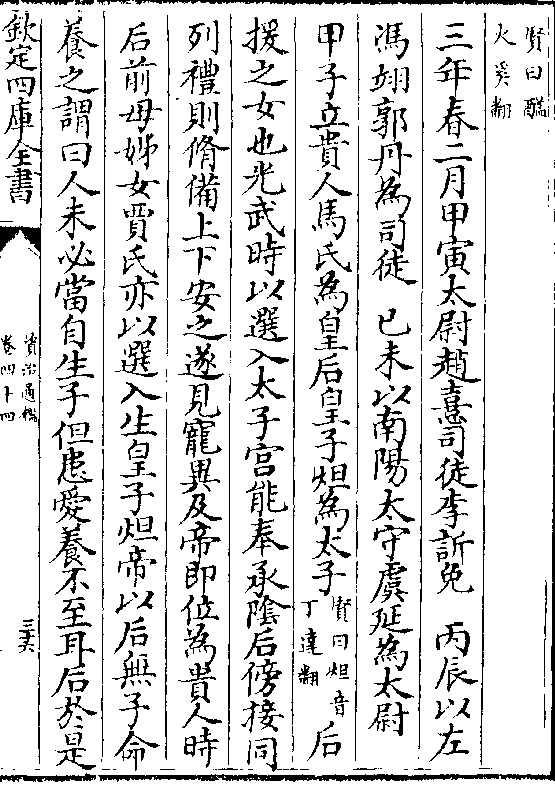 賢曰酺
火奚翻
三年春二月甲寅太尉趙憙司徒李訢免　丙辰以左
馮翊郭丹為司徒　已未以南陽太守虞延為太尉
甲子立貴人馬氏為皇后皇子炟為太子賢曰炟音丁達翻后
援之女也光武時以選入太子宮能奉承陰后傍接同
列禮則脩備上下安之遂見寵異及帝即位為貴人時
后前母姊女賈氏亦以選入生皇子炟帝以后無子命
養之謂曰人未必當自生子但患愛養不至耳后於是
欽定四庫全書
資治通鑑
卷四十四
三六